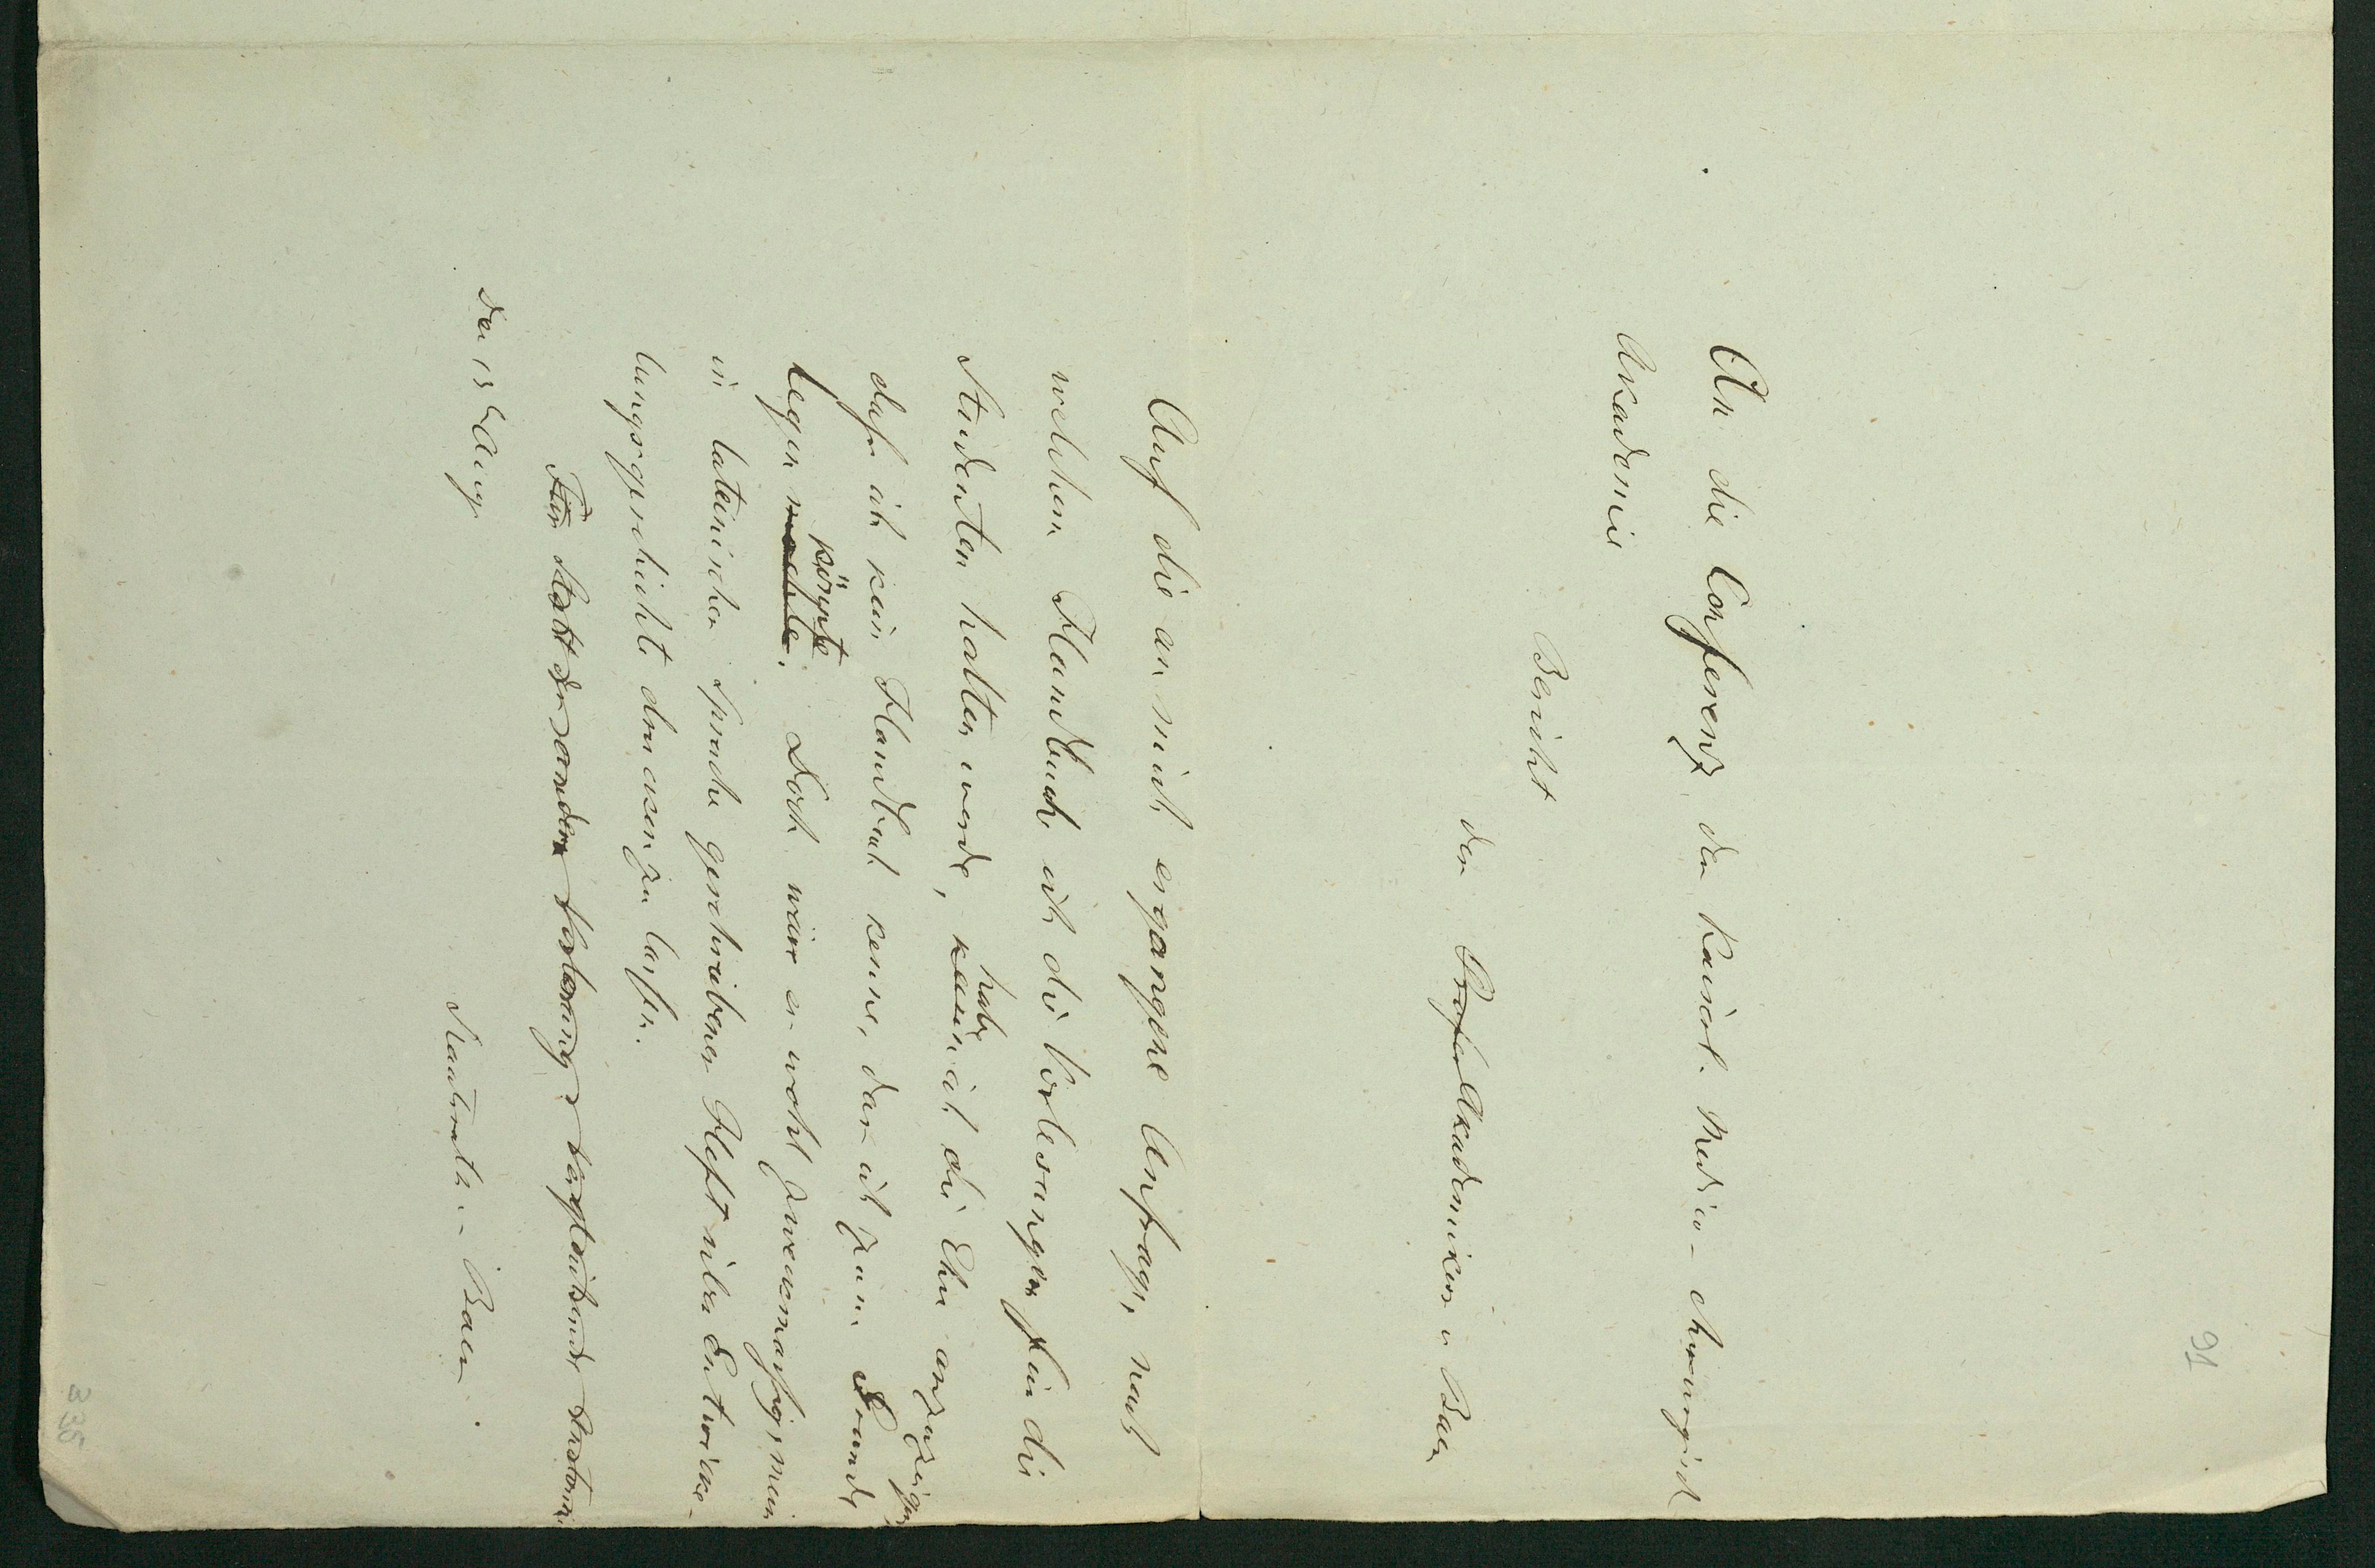 91
An die Conferenz der Kaiserl. Medico-chirurgisch
Akademie
Bericht
des Profes Akademikers v Baer
Auf die an mich ergangene Anfrage, nach
welchem Handbuch ich die Vorlesungen für die
Studenten halten werde, kann habe ich die Ehre anzuzeigen,
dass ich kein Handbuch kenne, das ich zum Grunde
legen mochte könnte. Doch wäre es wohl zweckmässig, mein
in lateinischer Sprache geschriebenes Heft über Entwicke-
lungsgeschichte drucken zu lassen.
Für statt der andern Vorlesung
den 15 Aug
Staatsrath v. Baer.
336